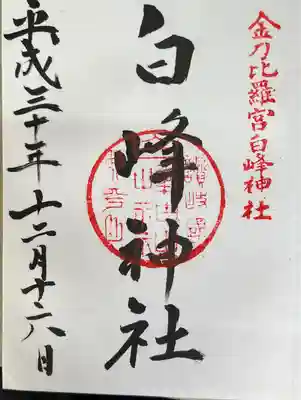 金刀比羅宮白峰神社
白峰神社
平成三十年十二月十六日